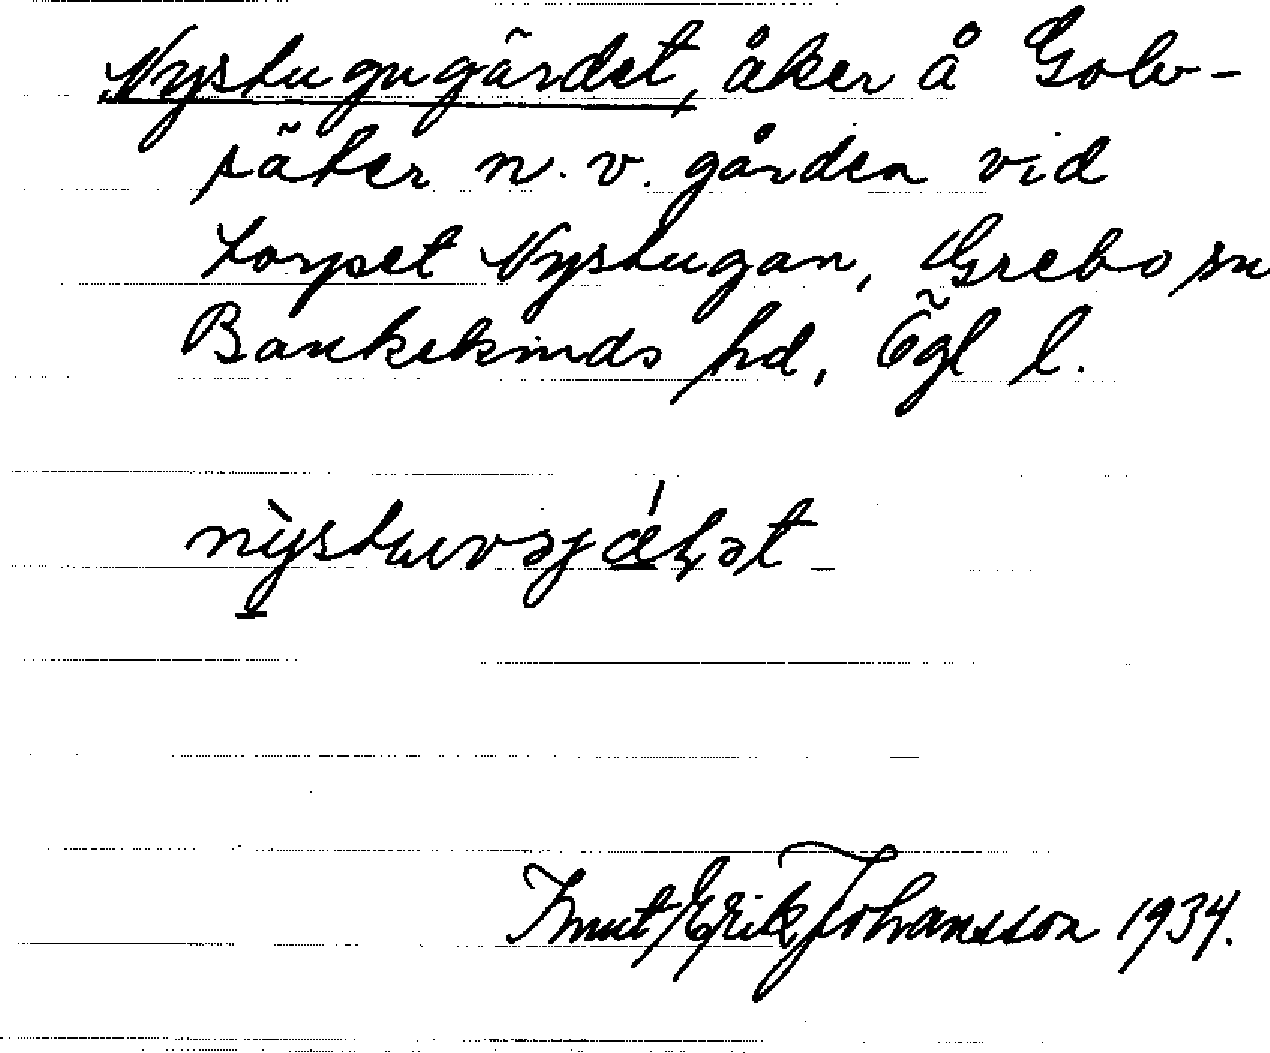 Nystugugärdet, åker å Golv-
säter n. v. gården vid
torpet Nystugan, Grebo sn
Bankekinds hd, Ögl l.
Knut Erik Johansson 1934.